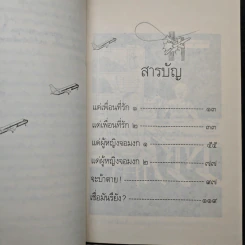 สารบัญ
แด่เพื่อนที่รัก ๑ ๑๓
แด่เพื่อนที่รัก ๒ ๓๓
แด่ผู้หญิงจอมงก ๑ ๕๕
แด่ผู้หญิงจอมงก ๒ ๗๗
จะบ้าตาย! ๙๗
เชื่อมั้นรึยัง? ๑๑๙